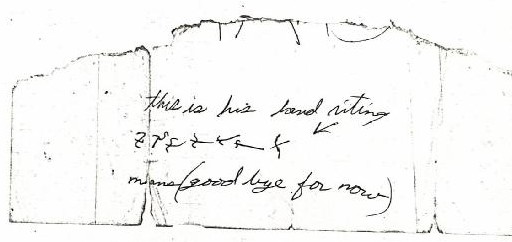 this is his hand riting
mine (good bye for now)